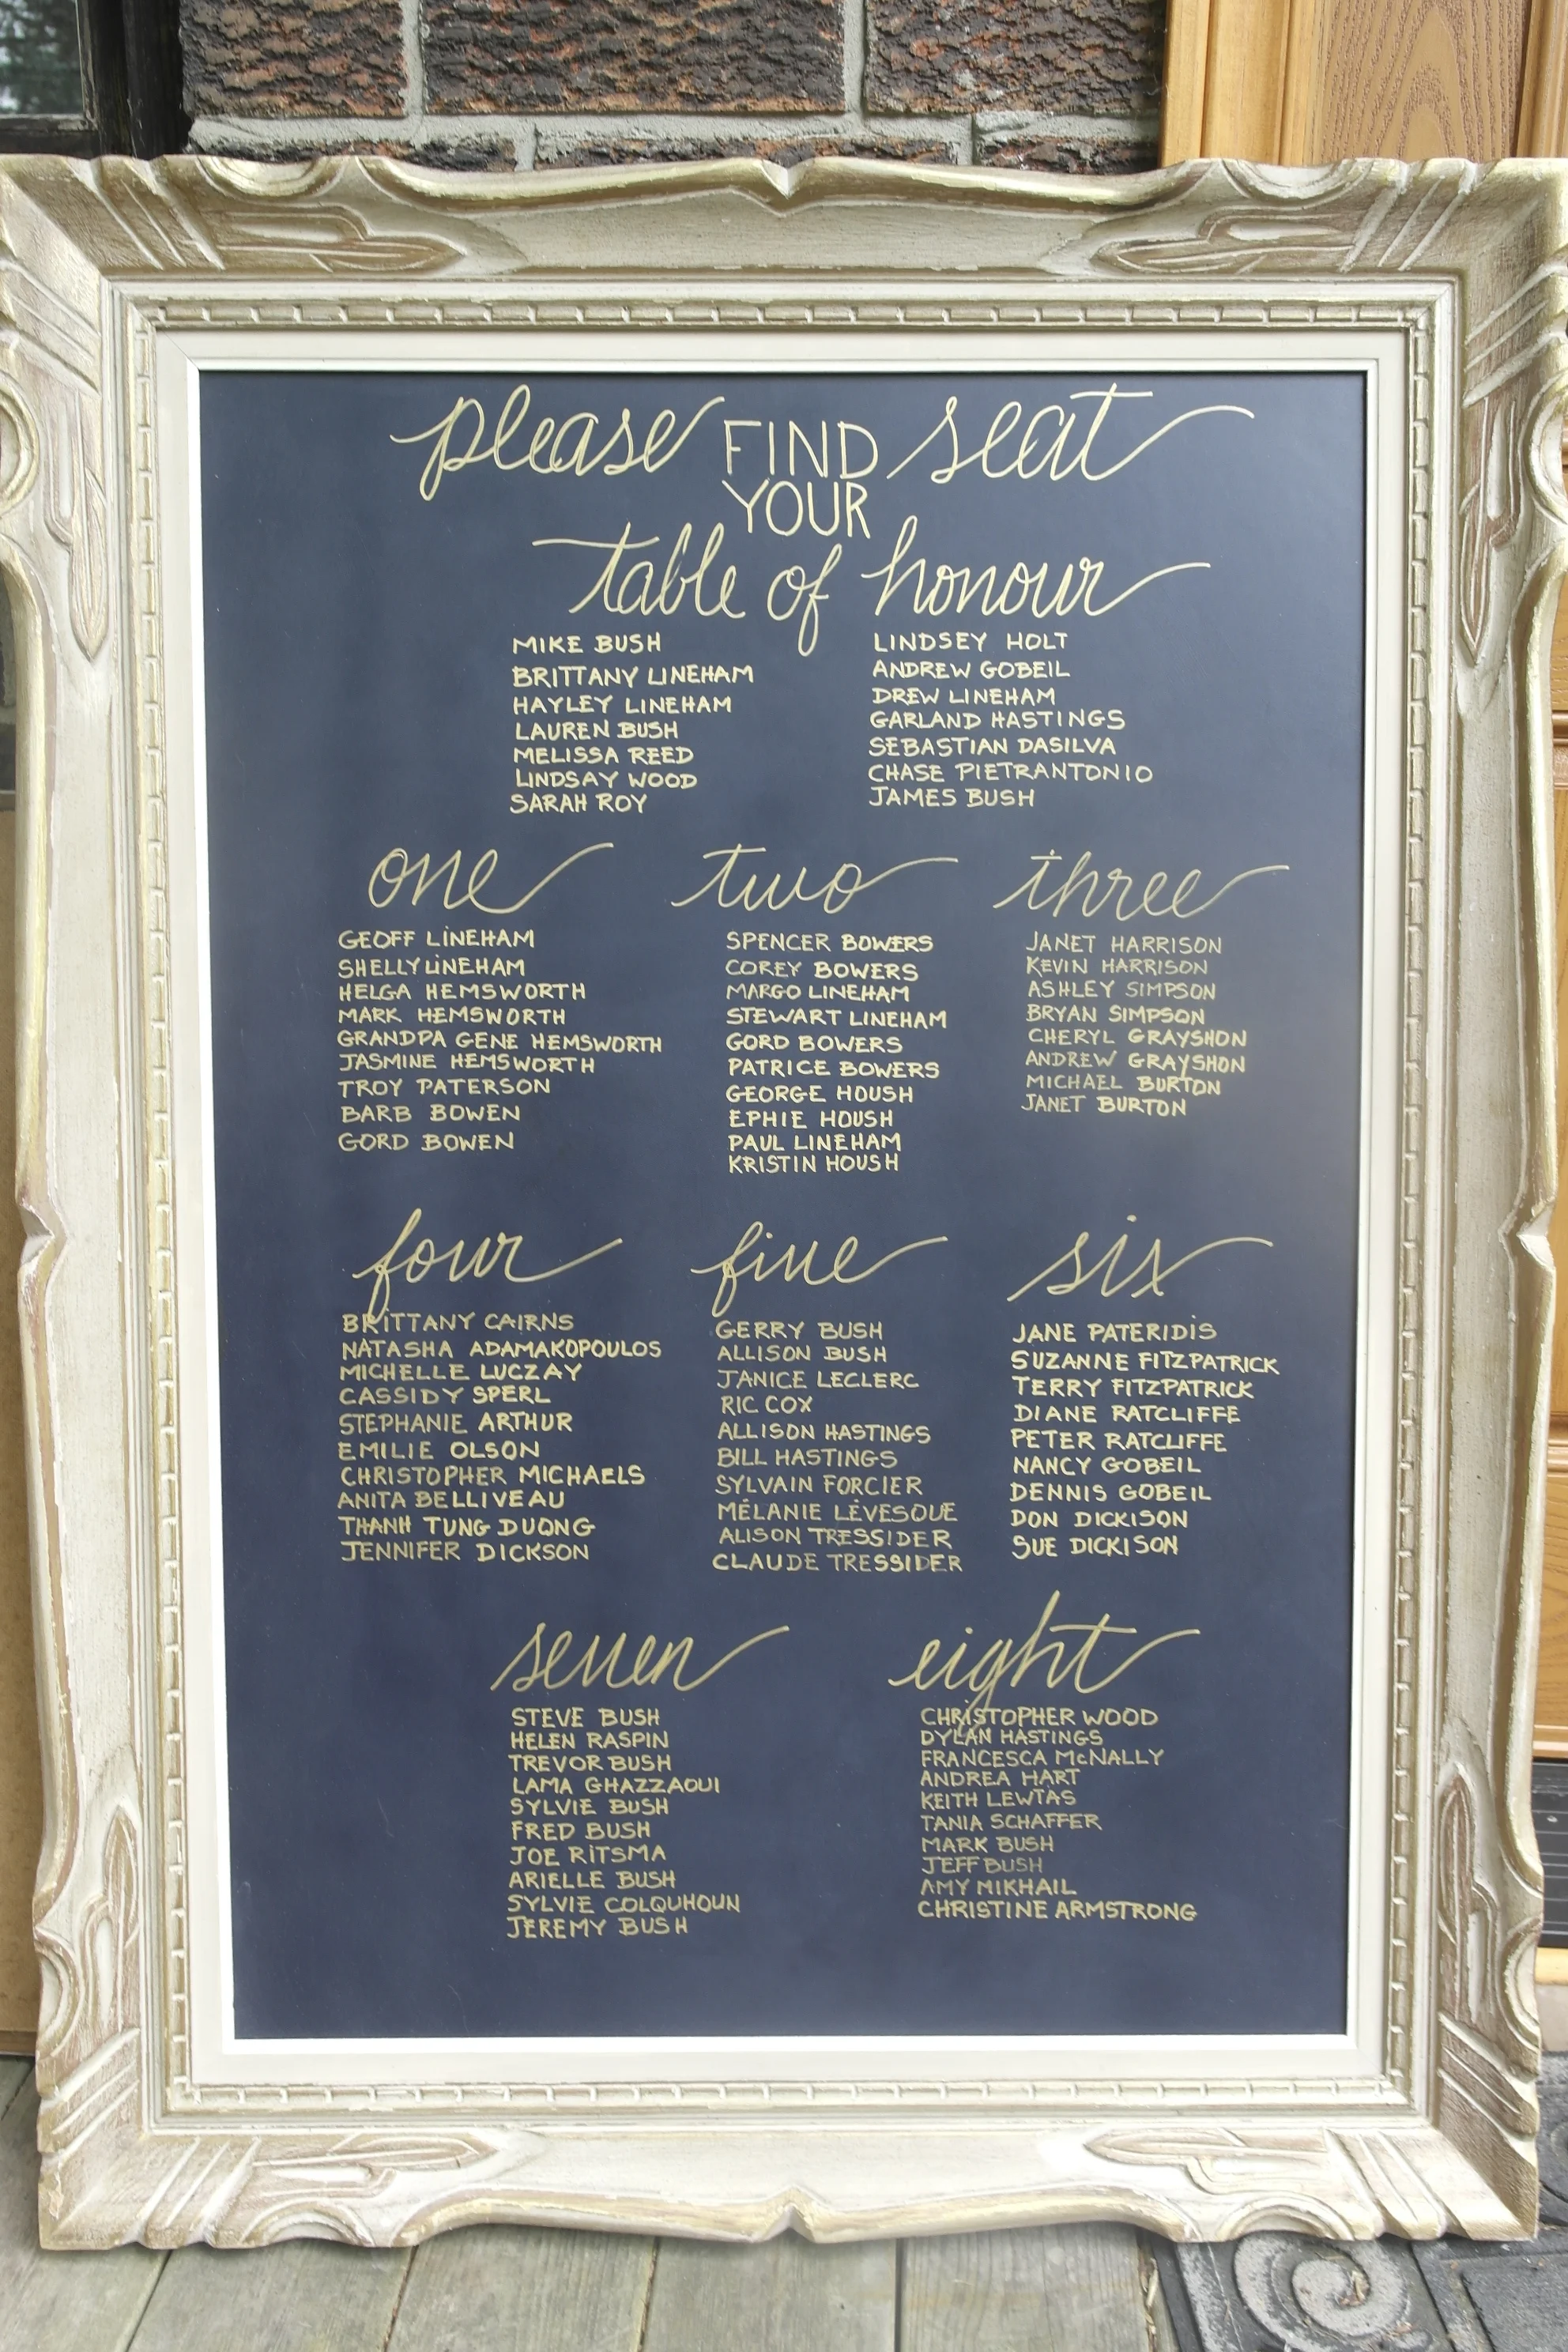 please FIND YOUR seat
table of honour
MIKE BUSH
BRITTANY LINEHAM
HAYLEY LINEHAM
LAUREN BUSH
MELISSA REED
LINDSAY WOOD
SARAH ROY
LINDSEY HOLT
ANDREW GOBEIL
DREW LINEHAM
GARLAND HASTINGS
SEBASTIAN DASILVA
CHASE PIETRANTONIO
JAMES BUSH
one
GEOFF LINEHAM
SHELLY LINEHAM
HELGA HEMSWORTH
MARK HEMSWORTH
GRANDPA GENE HEMSWORTH
JASMINE HEMSWORTH
TROY PATERSON
BARB BOWEN
GORD BOWEN
two
SPENCER BOWERS
COREY BOWERS
MARGO LINEHAM
STEWART LINEHAM
GORD BOWERS
PATRICE BOWERS
GEORGE HOUSH
EPHIE HOUSH
PAUL LINEHAM
KRISTIN HOUSH
three
JANET HARRISON
KEVIN HARRISON
ASHLEY SIMPSON
BRYAN SIMPSON
CHERYL GRAYSHON
ANDREW GRAYSHON
MICHAEL BURTON
JANET BURTON
four
BRITTANY CAIRNS
NATASHA ADAMAKOPOULOS
MICHELLE LUCZAY
CASSIDY SPERL
STEPHANIE ARTHUR
EMILIE OLSON
CHRISTOPHER MICHAELS
ANITA BELLIVEAU
THANH TUNG DUONG
JENNIFER DICKSON
five
GERRY BUSH
ALLISON BUSH
JANICE LECLERC
RIC COX
ALLISON HASTINGS
BILL HASTINGS
SYLVAIN FORCIER
MÉLANIE LÉVESQUE
ALISON TRESSIDER
CLAUDE TRESSIDER
six
JANE PATERIDIS
SUZANNE FITZPATRICK
TERRY FITZPATRICK
DIANE RATCLIFFE
PETER RATCLIFFE
NANCY GOBEIL
DENNIS GOBEIL
DON DICKISON
SUE DICKISON
seven
STEVE BUSH
HELEN RASPIN
TREVOR BUSH
LAMA GHAZZAOUI
SYLVIE BUSH
FRED BUSH
JOE RITSMA
ARIELLE BUSH
SYLVIE COLQUHOUN
JEREMY BUSH
eight
CHRISTOPHER WOOD
DYLAN HASTINGS
FRANCESCA McNALLY
ANDREA HART
KEITH LEWTAS
TANIA SCHAFFER
MARK BUSH
JEFF BUSH
AMY MIKHAIL
CHRISTINE ARMSTRONG